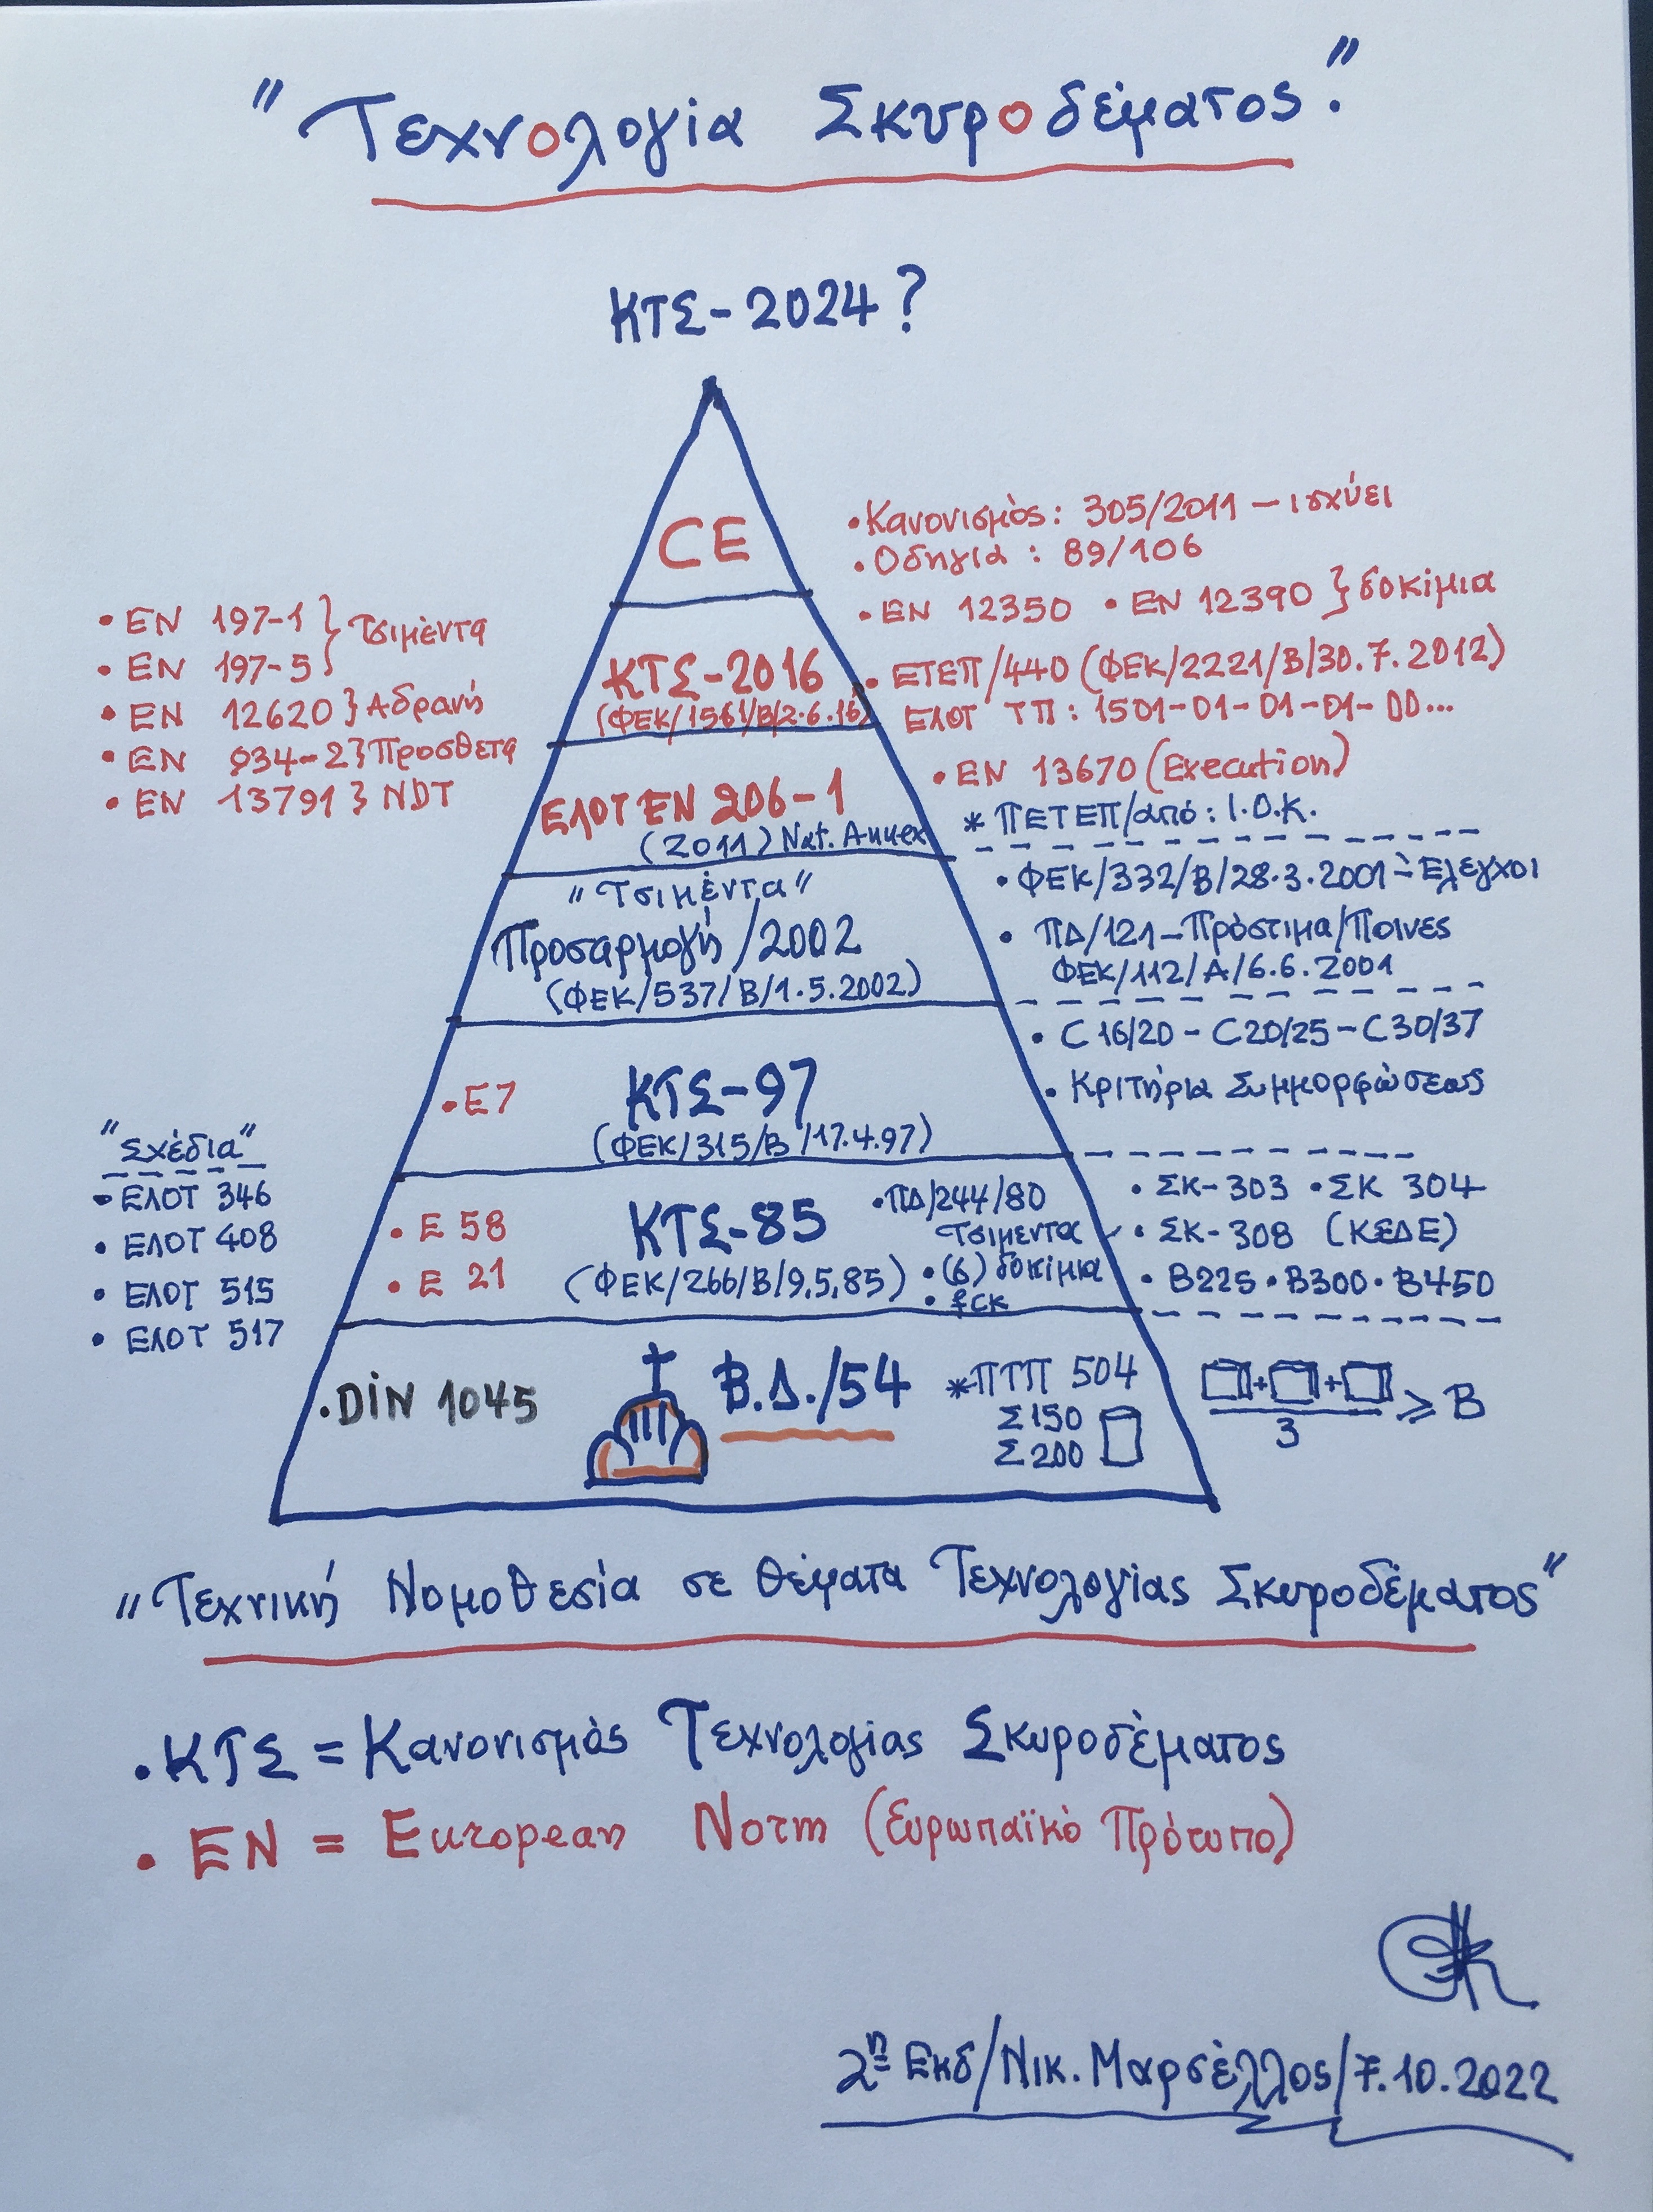 "Τεχνολογία Σκυροδέματος."
ΚΤΣ-2024?
CE
• Κανονισμός: 305/2011 – ισχύει
• Οδηγία: 89/106
• EN 12350 • EN 12390 } δοκίμια
• EN 197-1 } Τσιμέντα
• EN 197-5
• EN 12620 } Αδρανή
• EN 934-2 } Πρόσθετα
• EN 13791 } NDT
ΚΤΣ-2016
(ΦΕΚ/1561/Β/2.6.16)
• ΕΤΕΠ/440 (ΦΕΚ/2221/Β/30.7.2012)
ΕΛΟΤ ΤΠ: 1501-01-01-01-00...
ΕΛΟΤ EN 206-1
(2011) Nat. Annex
• EN 13670 (Execution)
* ΠΕΤΕΠ/από: Ι.Ο.Κ.
"Τσιμέντα"
Προσαρμογή/2002
(ΦΕΚ/537/Β/1.5.2002)
• ΦΕΚ/332/Β/28.3.2001 – Ελεγχοι
• ΠΔ/121 – Πρόστιμα/Ποινες
ΦΕΚ/112/Α/6.6.2001
• Ε7
ΚΤΣ-97
(ΦΕΚ/315/Β/17.4.97)
• C16/20 – C20/25 – C30/37
• Κριτήρια Συμμορφώσεως
"Σχέδια"
• ΕΛΟΤ 346
• ΕΛΟΤ 408
• ΕΛΟΤ 515
• ΕΛΟΤ 517
• Ε 58
• Ε 21
ΚΤΣ-85
(ΦΕΚ/266/Β/9,5,85)
• ΠΔ/244/80
Τσιμεντα
• (6) δοκίμια
• fck
• ΣΚ-303 • ΣΚ 304
• ΣΚ-308 (ΚΕΔΕ)
• Β225 • Β300 • Β450
• DIN 1045
Β.Δ./54
* ΠΤΠ 504
Σ150
Σ200
+ + ≥ Β
3
"Τεχνική Νομοθεσία σε θέματα Τεχνολογίας Σκυροδέματος"
• ΚΤΣ = Κανονισμός Τεχνολογίας Σκυροδέματος
• EN = European Norm (Ευρωπαϊκό Πρότυπο)
2η Εκδ/Νικ. Μαρσέλλος/7.10.2022